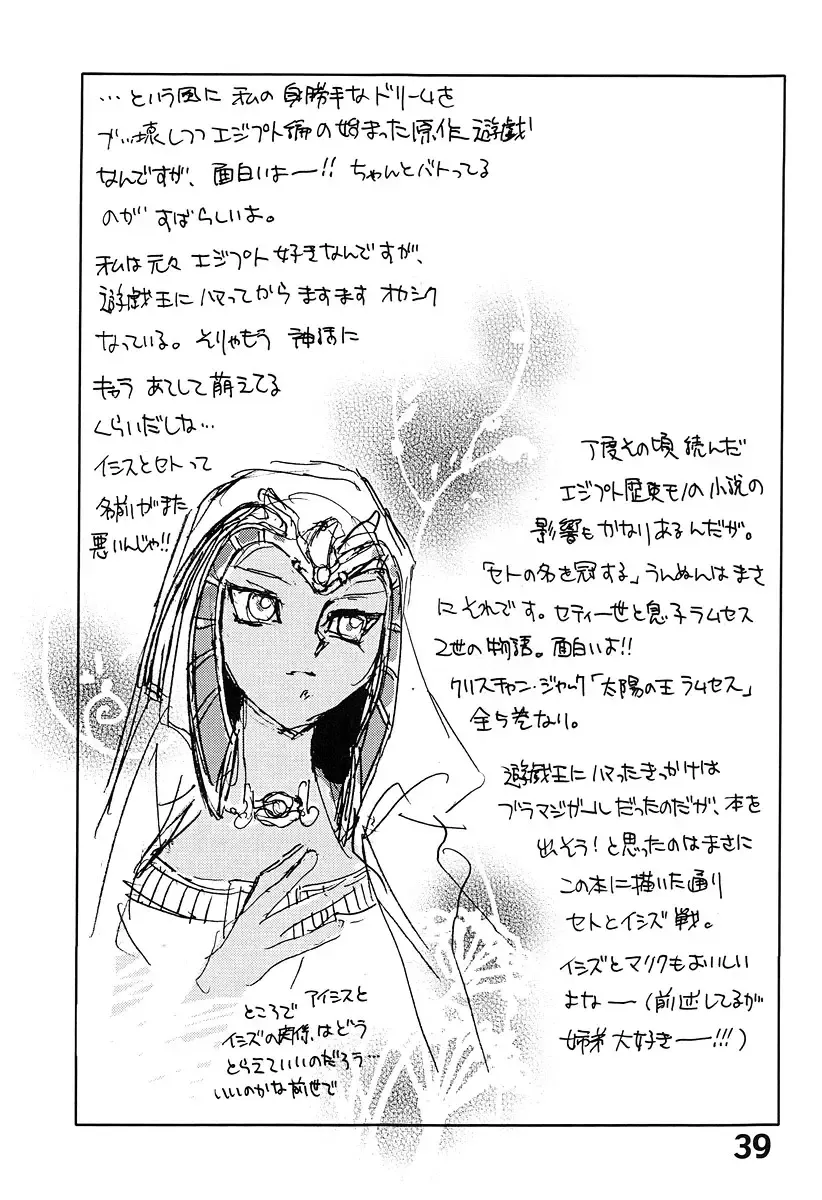 …という風に 私の身勝手なドリームを
ブッ壊しつつエジプト編の始まった原作遊戯
なんですが、面白いよー!! ちゃんとバトってる
のが すばらしいよ。
私は元々エジプト好きなんですが、
遊戯王にハマってから ますます オカシク
なっている。そりゃもう 神話に
キョウ あてして萌えてる
くらいだしな…
イシスとセトって
名前がまた
悪いんじゃ!!
丁度その頃 読んだ
エジプト歴史モノの小説の
影響もかなりあるんだが。
「セトの名を冠する」うんぬんはまさ
にそれです。セティ一世と息子ラムセス
2世の物語。面白いよ!!
クリスチャン・ジャック「太陽の王 ラムセス」
全5巻なり。
遊戯王にハマったきっかけは
ブラマジガールだったのだが、本を
出そう!と思ったのはまさに
この本に描いた通り
セトとイシズ戦。
イシズとマリクもおいしい
よなー(前述してるが
姉弟大好きー!!!)
ところで アイシスと
イシズの関係はどう
とらえていいのだろう…
いいのかな前世で
39